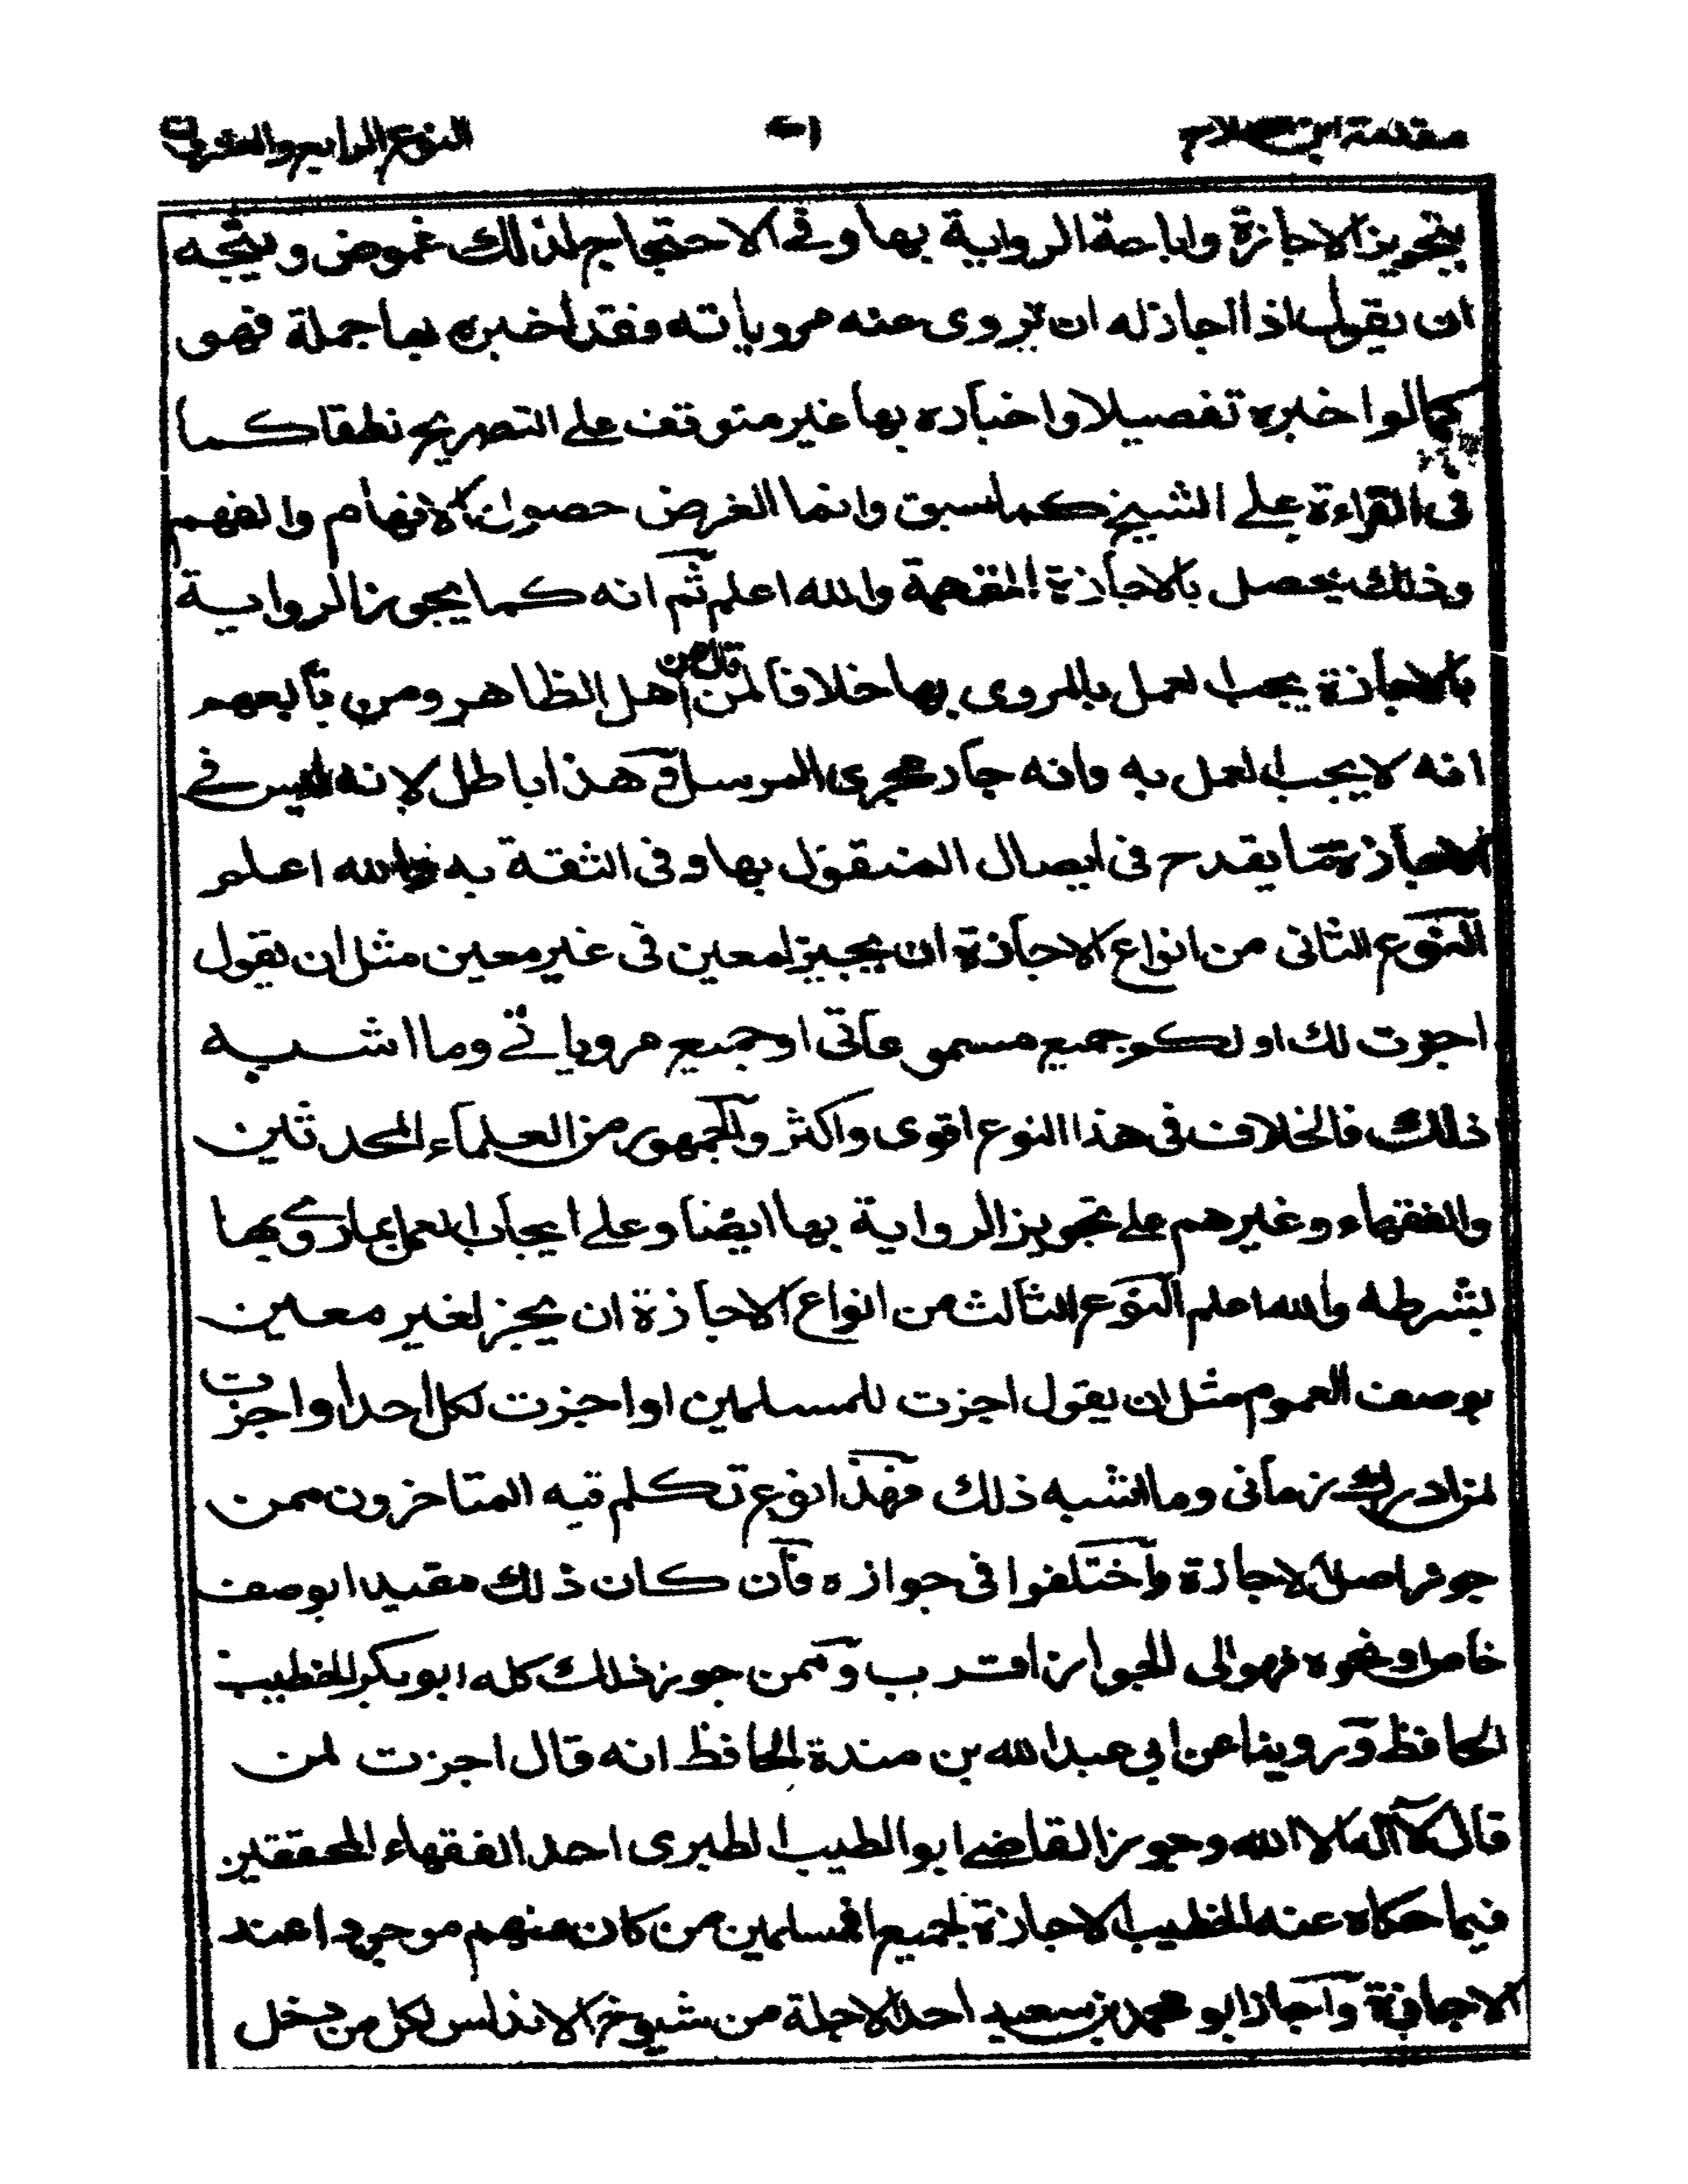 مقدمة ابن صلاح
النوع الرابع والعشرون
بتجويز الاجازة واباحة الرواية بها وفي الاحتجاج لذلك غموض ويتجه
ان يقول اذا اجاز له ان تروى عنه مروياته فقد اخبره بها جملة فهو
كما لو اخبره تفصيلا واخباره بها غير متوقف على التصريح نطقا كما
فى القراءة على الشيخ كما سبق وانما الغرض حصول الافهام والفهم
وذلك يحصل بالاجازة المفهمة والله اعلم ثم انه كما يجوز الرواية
بالاجازة يجب العمل بالمروى بها خلافا لمن قال من اهل الظاهر ومن تابعهم
انه لا يجب العمل به وانه جار مجرى المرسل وهذا باطل لانه ليس في
الاجازة ما يقدح فى ايصال المنقول بها وفى الثقة به والله اعلم
النوع الثانى من انواع الاجازة ان يجيز لمعين فى غير معين مثل ان يقول
اجزت لك او لكم جميع مسموعاتى او جميع مروياتي وما اشبه
ذلك فالخلاف فى هذا النوع اقوى واكثر والجمهور من العلماء المحدثين
والفقهاء وغيرهم على تجويز الرواية بها ايضا وعلى ايجاب العمل بما روى بها
بشرطه والله اعلم النوع الثالث من انواع الاجازة ان يجز لغير معين
بوصف العموم مثل ان يقول اجزت للمسلمين او اجزت لكل احد او اجزت
لمن ادرك زمانى وما اشبه ذلك فهذا نوع تكلم فيه المتاخرون ممن
جوز اصل الاجازة واختلفوا فى جوازه فان كان ذلك مقيدا بوصف
خاص او نحوه فهو الى الجواز اقرب وممن جوز ذلك كله ابو بكر الخطيب
الحافظ وروينا عن ابي عبد الله بن مندة الحافظ انه قال اجزت لمن
قال لا اله الا الله وجوز القاضي ابو الطيب الطبرى احد الفقهاء المحققين
فيما حكاه عنه الخطيب الاجازة لجميع المسلمين من كان منهم موجودا عند
الاجازة واجاز ابو محمد بن سعيد احد الاجلة من شيوخ الاندلس لكل من دخل